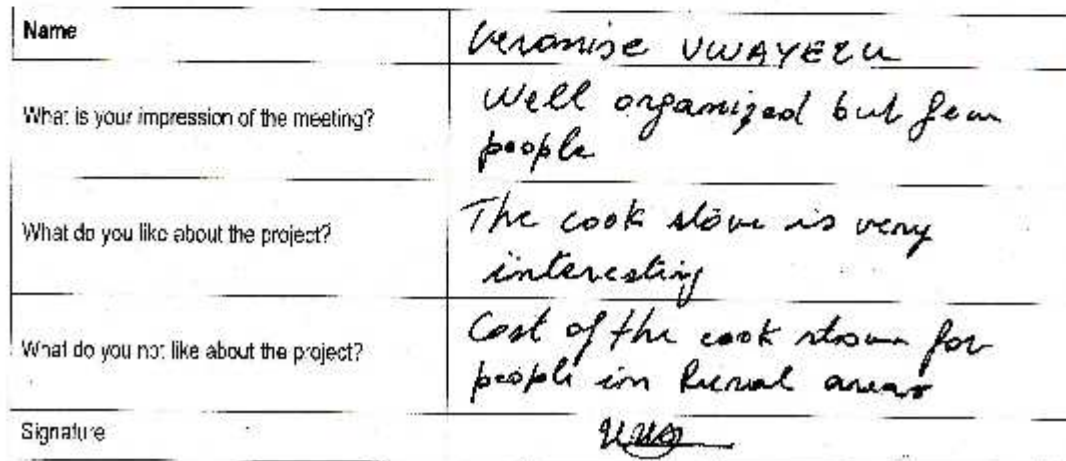 Name
Veranise UWAYEZU
What is your impression of the meeting?
Well organized but few
people
What do you like about the project?
The cook stove is very
interesting
What do you not like about the project?
Cost of the cook stove for
people in Rural areas
Signature